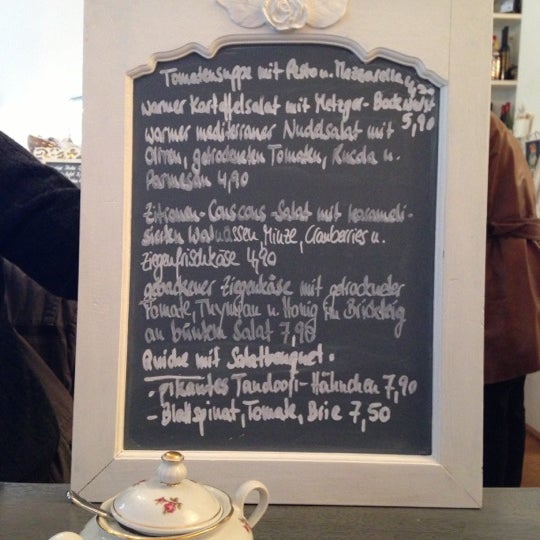 Tomatensuppe mit Pesto u. Mozzarella 4,20
warmer Kartoffelsalat mit Metzger-Bockwurst 5,90
warmer mediterraner Nudelsalat mit
Oliven, getrockneten Tomaten, Rucola u.
Parmesan 4,90
Zitronen-Couscous-Salat mit karameli-
sierten Walnüssen, Minze, Cranberries u.
Ziegenfrischkäse 4,90
gebackener Ziegenkäse mit getrockneter
Tomate, Thymian u. Honig im Brickteig
an buntem Salat 7,90
Quiche mit Salatbouquet:
- pikantes Tandoori-Hähnchen 7,90
- Blattspinat, Tomate, Brie 7,50